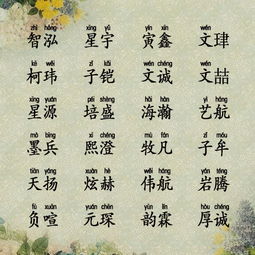 zhì hóng xīng yǔ yín xīn wén
智泓 星宇 寅鑫 文珒
kē wěi zǐ kǎi wén chéng wén
柯玮 子铠 文诚 文喆
xīng yuán péi shèng hǎi hàn yì háng
星源 培盛 海瀚 艺航
mò bīng xī chéng mù fán zǐ móu
墨兵 熙澄 牧凡 子牟
tiān yáng xuàn hè wěi háng yán téng
天扬 炫赫 伟航 岩腾
fù xuān yuán chēn yùn lín hòu chéng
负喧 元琛 韵霖 厚诚